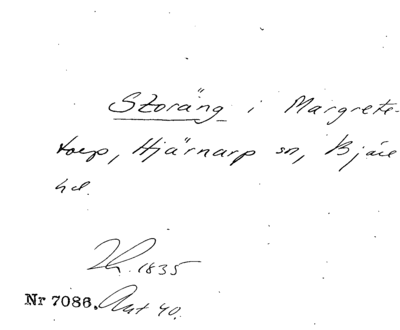 Storäng i Margrete-
torp, Hjärnarp sn, Bjäre
hd.
1835
Nr 7086. Akt 40.